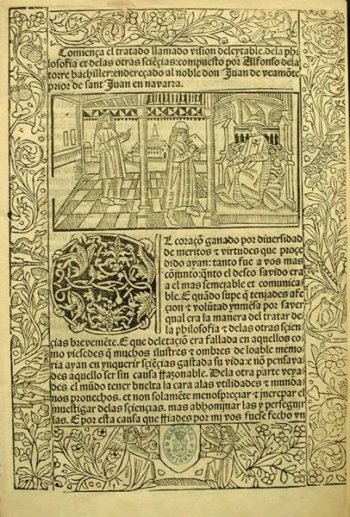 Comiença el tratado llamado vision deleytable. dela phi
losofia et delas otras sciẽçias: compuesto por Alfonso dela
torre bachiller: endereçado al noble don Juan de veamõte
prior de sant Juan en navarra.
EL coraçõ ganado por diversidad
de meritos & virtudes que proçe
dido ayan: tanto fue a vos mas
cõjunto: q̃nto el deseo savido era
a el mas semejable et comunica
ble. E quãdo supe q̃ teniades afe
cion & volũtad ynmẽsa por saver
qual era la manera del tratar de
la philosophia & delas otras sciẽn
çias brevemẽte. E que deletaçiõ era fallada en aquellos co
mo viesedes q̃ muchos ilustres & ombres de loable memo
ria ayan en ynquerir sciẽçias gastado su vida: & nõ pensava
des aquello ser sin causa rrazonable. Dela otra parte veya
des el mũdo tener buelta la cara alas utilidades & mundã
nos provechos. et non solamẽte menospreciar & increpar el
investigar delas sciençias. mas abhominar las y persegui
las. E por esta causa que ffiades por mi vos fuese fecho vn